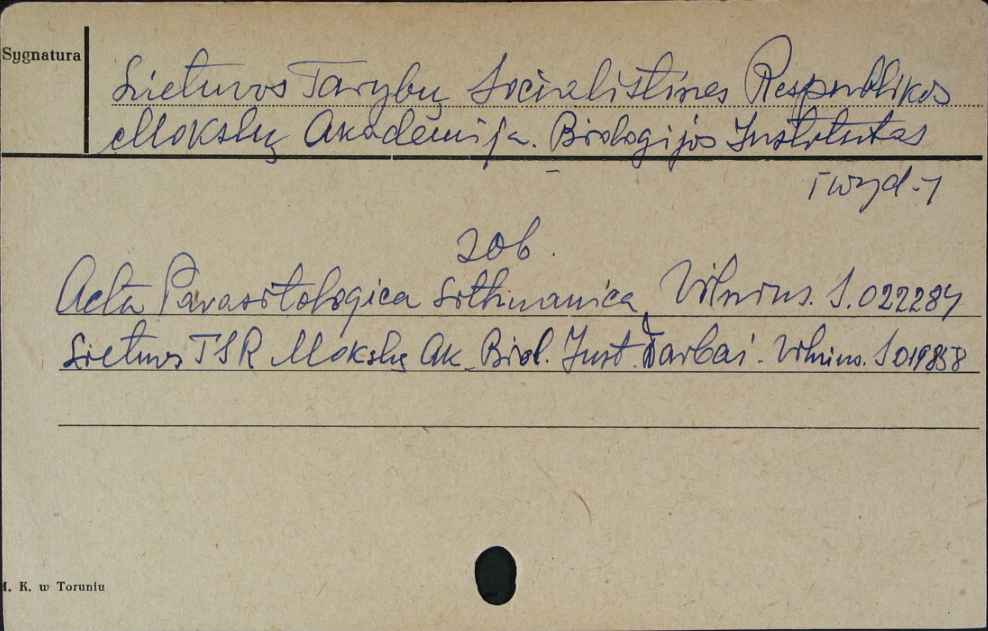 Sygnatura
Lietuvos Tarybų Socialistines Respublikos
Mokslų Akademija. Biologijos Institutas
[wyd.]
zob.
Acta Parasitologica Lithuanica, Vilnius. S.022284
Lietuvos TSR Mokslų Ak. Biol. Inst. Darbai. Vilnius. S019858
M. K. w Toruniu